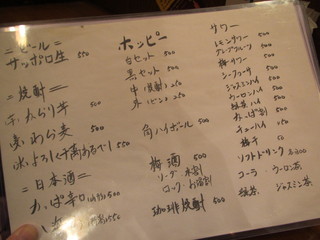 =ビール=
サッポロ生 550
=焼酎=
芋: からり芋 500
麦: わら麦 500
550
=日本酒=
かっぱ辛口 500
550
ホッピー
白セット 500
黒セット 500
中(焼酎) 250
外(ホッピー) 250
角ハイボール 500
梅酒 500
ソーダ 水割
ロック・お湯割
珈琲焼酎 500
サワー
レモンサワー 500
グレープフルーツ 500
梅サワー 500
シークァーサー 500
ジャスミンハイ 500
ウーロンハイ 500
緑茶ハイ 500
かっぱ割 500
チューハイ 450
梅干 50
ソフトドリンク 300
コーラ・ウーロン茶
緑茶 ジャスミン茶